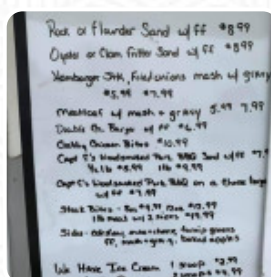 Rock or Flounder Sand w/ FF $8.99
Oyster or Clam Fritter Sand w/ FF $8.99
Hamburger Stk, Fried onions mash w/ gravy
$5.99 $7.99
Meatloaf w/ mash + gravy 5.99 7.99
Double Dc Burger w/ FF $6.99
Chicken Bites $10.99
Capt S's Woodsmoked Pork BBQ Sand w/FF $7.
1/2 lb $5.99 1lb $9.99
Capt S's Woodsmoked Pork BBQ on a
w/ FF $7.99
Steak Bites - 8oz $9.99, 12oz $13.99
1lb meal w/ 2 sides $19.99
Sides - coleslaw, mac+cheese, turnip greens
FF, mash+gravy, baked apples
We Have Ice Cream 1 scoop $2.99